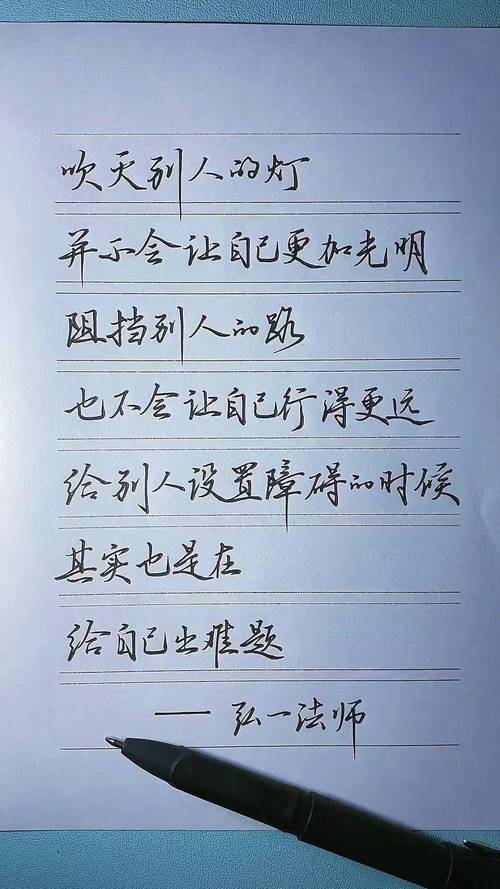 吹灭别人的灯
并不会让自己更加光明
阻挡别人的路
也不会让自己行得更远
给别人设置障碍的时候
其实也是在
给自己出难题
——弘一法师